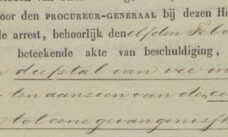 oor den PROCUREUR-GENERAAL bij dezen Ho
de arrest, behoorlijk den elfden Feb
beteekende akte van beschuldiging,
diefstal van vee in
ten aanzien van den ee
tot eene gevangenisst